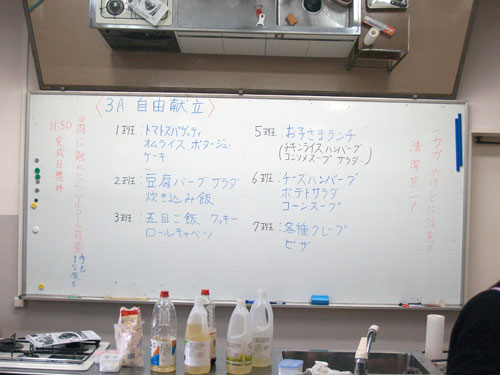 〈3A 自由献立〉
1班:トマトスパゲッティ
オムライス ポタージュ
ケーキ
2班:豆腐バーグ サラダ
炊き込み飯
3班:五目ご飯 クッキー
ロールキャベツ
5班:お子さまランチ
(チキンライス ハンバーグ
コンソメスープ サラダ)
6班:チーズハンバーグ
ポテトサラダ
コーンスープ
7班:各種クレープ
ピザ
11:50
完成目標時
清潔第一!